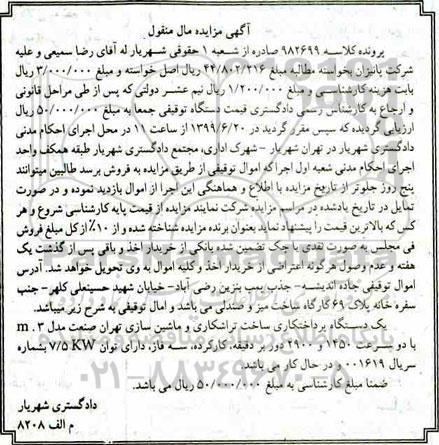 آگهی مزایده مال منقول
پرونده کلاسه ۹۸۲۶۹۹ صادره از شعبه ۱ حقوقی شهریار له آقای رضا سمیعی و علیه
شرکت بانیژان بخواسته مطالبه مبلغ ۴۴/۸۰۲/۲۱۶ ریال اصل خواسته و مبلغ ۳/۰۰۰/۰۰۰ ریال
بابت هزینه کارشناسی و مبلغ ۱/۲۰۰/۰۰۰ ریال نیم عشر دولتی که پس از طی مراحل قانونی
و ارجاع به کارشناس رسمی دادگستری قیمت دستگاه توقیفی جمعا به مبلغ ۵۰/۰۰۰/۰۰۰ ریال
ارزیابی گردیده که سپس مقرر گردید در ۱۳۹۹/۶/۲۰ از ساعت ۱۱ در محل اجرای احکام مدنی
دادگستری شهریار در تهران شهریار – شهرک اداری، مجتمع دادگستری شهریار طبقه همکف واحد
اجرای احکام مدنی شعبه اول اجرا که اموال توقیفی از طریق مزایده به فروش برسد طالبین میتوانند
پنج روز جلوتر از تاریخ مزایده با اطلاع و هماهنگی این اجرا از اموال بازدید نموده و در صورت
تمایل در تاریخ یادشده در مراسم مزایده شرکت نمایند مزایده از قیمت پایه کارشناسی شروع و هر
کس که بالاترین قیمت را پیشنهاد نماید بعنوان برنده مزایده شناخته شده و از ۱۰٪ از کل مبلغ فروش
فی مجلس به صورت نقدی یا چک تضمین شده بانکی از خریدار اخذ و باقی پس از گذشت یک
هفته و عدم وصول هرگونه اعتراضی از خریدار اخذ و کلیه اموال به وی تحویل خواهد شد. آدرس
اموال توقیفی جاده اندیشه– جذب پمپ بنزین رضی آباد– خیابان شهید حسینعلی کلهر– جنب
سفره خانه پلاک ۶۹ کارگاه ساخت میز و صندلی می باشد و امال توقیفی به شرح زیر میباشد.
یک دستگاه پرداختکاری ساخت تراشکاری و ماشین سازی تهران صنعت مدل m .۳
با دو سرعت ۱۴۵۰ و ۲۹۰۰ دور بر دقیقه، کارکرده، سه فاز، دارای توان ۷/۵ KW بشماره
سریال ۰۰۱۶۱۹ و در حال کار می باشد.
ضمنا مبلغ کارشناسی به مبلغ ۵۰/۰۰۰/۰۰۰ ریال می باشد.
دادگستری شهریار
م الف ۸۲۰۸